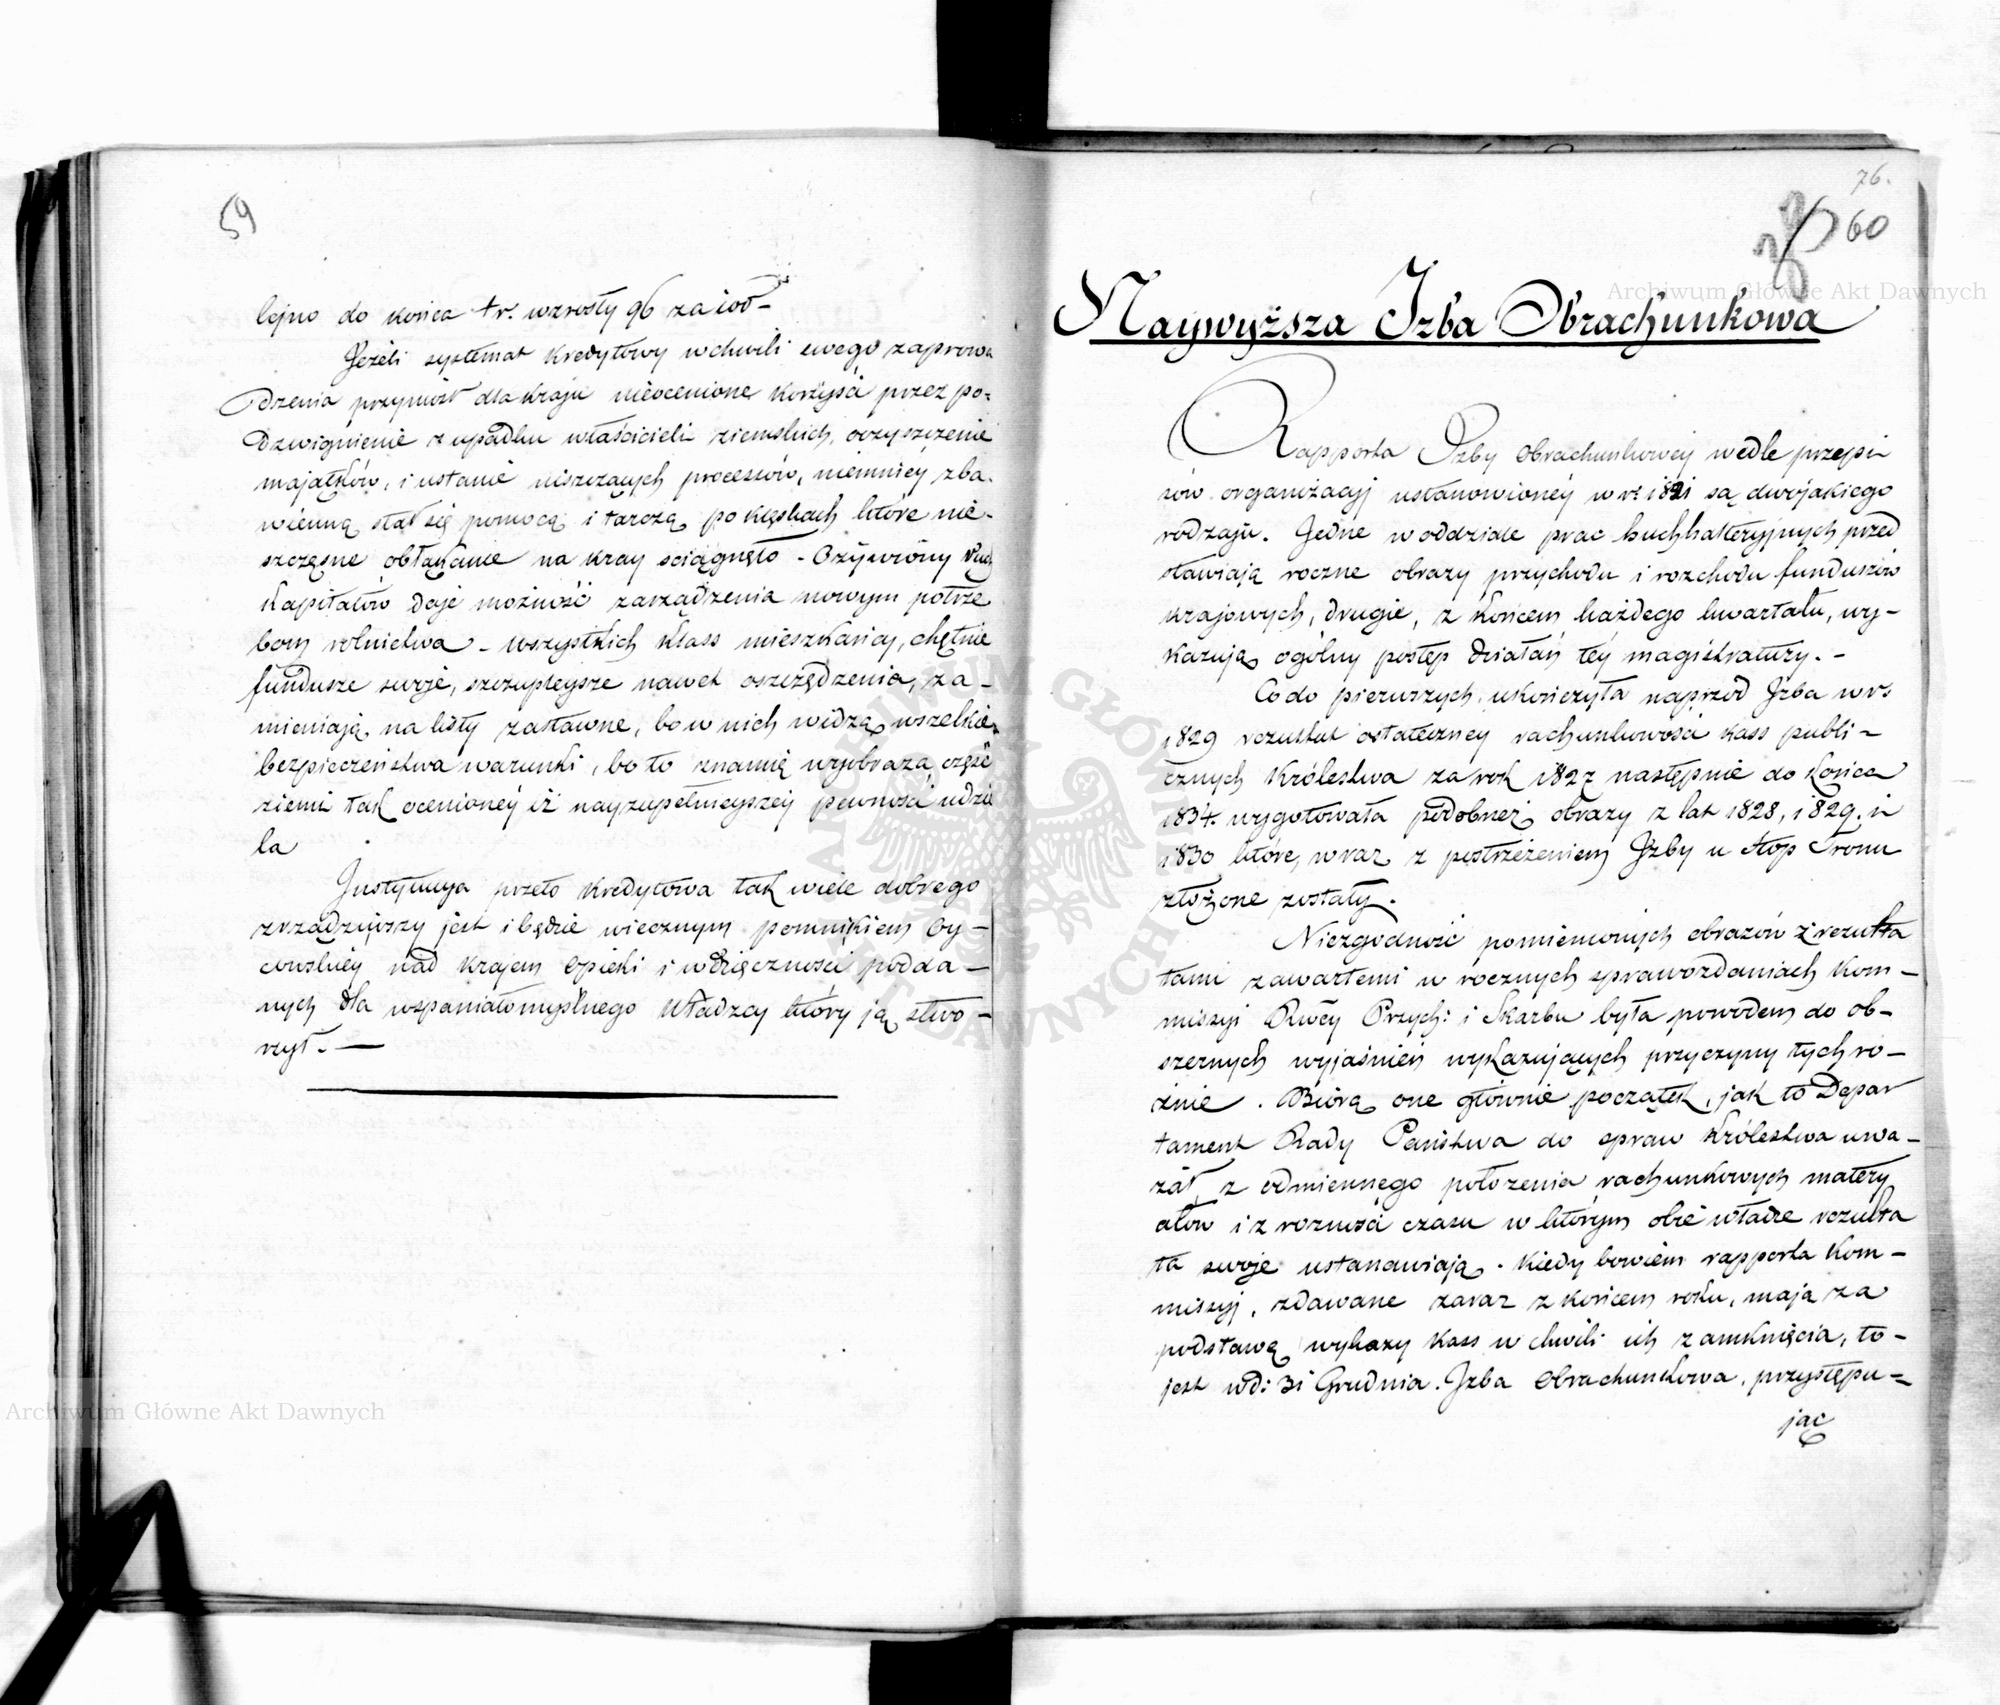 59
lejno do końca t r. wzrosły 96 za 100 –
Jeżeli systemat kredytowy w chwili swego zaprowa
dzenia przyniósł dla kraju nieocenione korzyści przez po=
dzwignienie z upadku właścicieli ziemskich, oczyszczenie
majątków, i ustanie niszczących processów, niemniéy zba-
wienną stał się pomocą i tarczą po klęskach które nie-
szczęsne obłąkanie na kray sciągnęło – Ożywiony ruch
Kapitałów daje możność zarządzenia nowym potrze
bom rolnictwa – wszystkich klass mieszkańcy, chętnie
fundusze swoje, szczupleysze nawet oszczędzenia, za –
mieniają na listy zastawne, bo w nich widzą wszelkie
bezpieczeństwa warunki, bo to znamię wyobraża część
ziemi tak ocenionéy iż nayzupełnieyszéy pewności udzie
la
Instytucya przeto Kredytowa tak wiele dobrego
zrządziwszy jest i będzie wiecznym pomnikiem Oy –
cowskiéy nad krajem Opieki i wdzięczności podda –
nych dla wspaniałomyślnego Władzcy który ją stwo –
rzył. —
76.
60
Naywyższa Izba Obrachunkowa
Rapporta Izby Obrachunkowéy wedle przepi
sów organizacyj ustanowionéy w r. 1821 są dwojakiego
rodzaju. Jedne w oddziale prac buchhalteryjnych przed
stawiają roczne obrazy przychodu i rozchodu funduszów
krajowych, drugie, z końcem każdego kwartału, wy –
kazują ogólny postęp działań téy magistratury. –
Co do pierwszych, ukończyła naprzód Izba w r.
1829 rezultat ostateczney rachunkowości kass publi –
cznych Królestwa za rok 1827 następnie do końca
1834. wygotowała podobneż obrazy z lat 1828, 1829. i
1830 które, wraz z postrzeżeniem Izby u stop Tronu
złożone zostały.
Niezgodność pomienionych obrazów z rezulta
tami zawartemi w rocznych sprawozdaniach Kom –
missyi Rwéy Przych: i Skarbu była powodem do ob –
szernych wyjaśnień wykazujących przyczyny tych ró –
żnic. Biorą one głównie początek, jak to Depar
tament Rady Państwa do spraw Królestwa uwa –
żał, z odmiennego położenia rachunkowych matery
ałów i z rozności czasu w którym obie władze rezulta
ta swoje ustanawiają. Kiedy bowiem rapporta Kom –
missyj, zdawane zaraz z końcem roku, mają za
podstawę wykazy kass w chwili ich zamknięcia, to –
jest w d: 31 Grudnia. Izba Obrachunkowa, przystępu =
jąc
Archiwum Główne Akt Dawnych
Archiwum Główne Akt Dawnych
ARCHIWUM GŁÓWNE AKT DAWNYCH